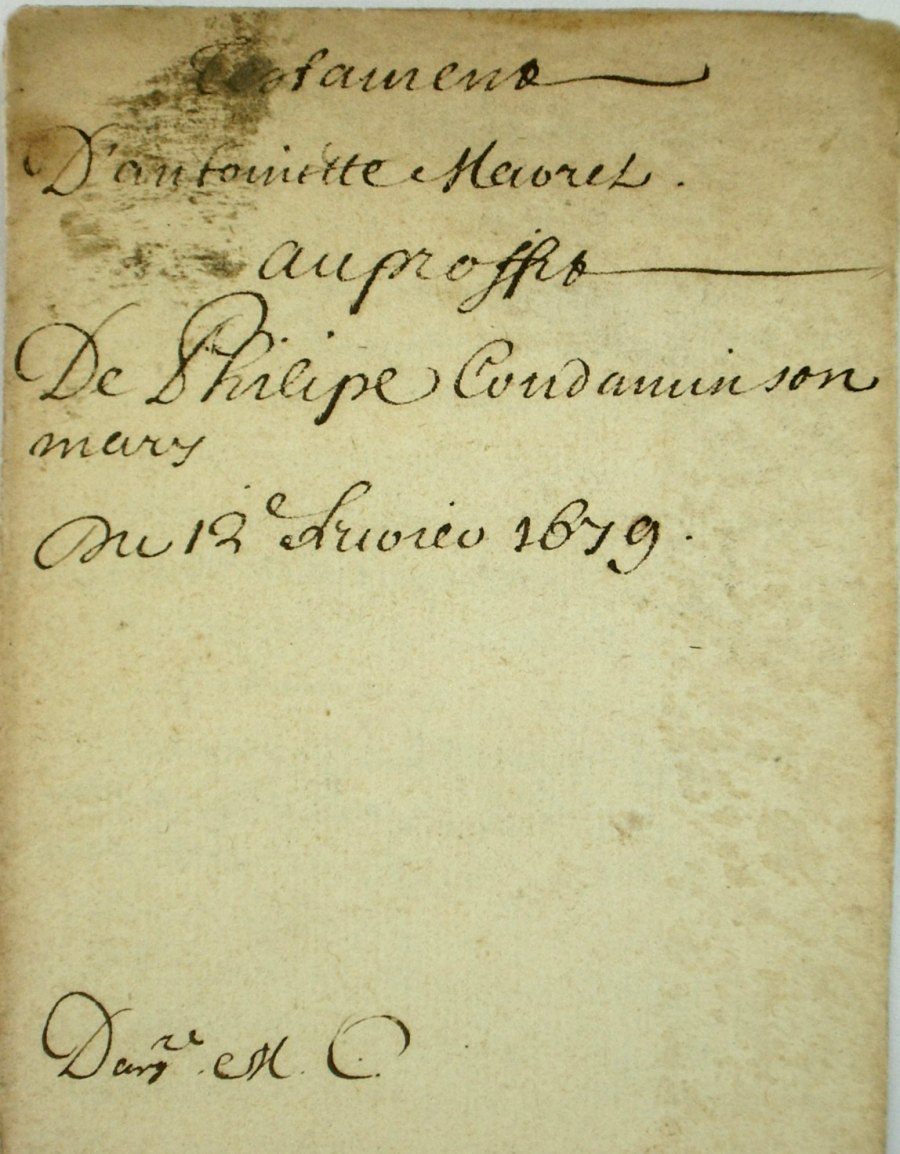 Testament
D'antoinette Mavrel.
au proffit
De Philipe Condamin son
mary
Du 12e fevrier 1679.
M. C.